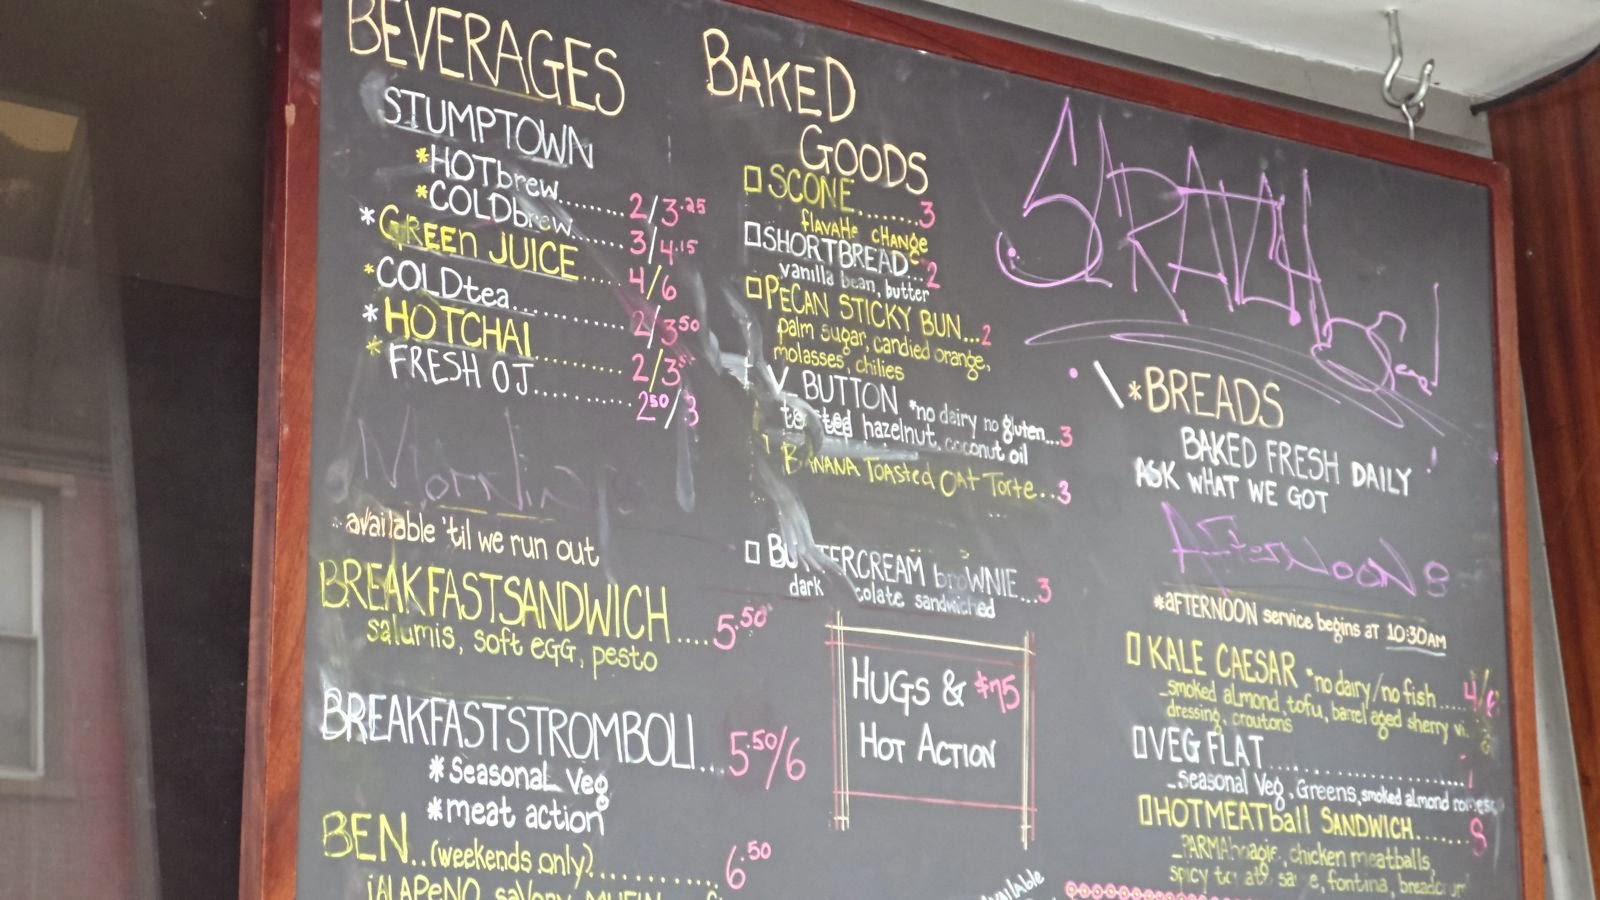 BEVERAGES
STUMPTOWN
*HOTbrew........ 2/3.25
*COLDbrew...... 3/4.15
*GREEn JUICE..... 4/6
*COLDtea........... 2/3 50
*HOTCHAI.......... 2/3
*FRESH OJ.......... 2 50/3
Morning
available 'til we run out
BREAKFASTSANDWICH....5.50
salumis, soft EGG, pesto
BREAKFASTSTROMBOLI...5.50/6
*Seasonal Veg
*meat action
BEN..(weekends only)............6.50
jALAPeNO, savory
BAKED
GOODS
SCONE........3
flavaHs CHANGe
SHORTBREAD...2
vanilla bean, butter
PECAN STICKY BUN...2
palm sugar, candied orange,
molasses, chilies
BUTTON *no dairy no gluten...3
hazelnut, coconut oil
BANANA TOASTED OAT Torte...3
BUTTERCREAM broWNIE...3
dark sandwiched
HUGS & $75
HOT ACTION
available
*BREADS
BAKED FRESH DAILY
ASK WHAT WE GOT
AFTERNOONS
*AFTERNOON service begins AT 10:30AM
KALE CAESAR *no dairy/no fish.....4/6
_smoked almond, tofu, barrel aged sherry
dressing, croutons
VEG FLAT
_seasonal Veg, Greens, smoked almond
HOTMEATball SANDWICH......8
chicken meatballs,
spicy fontina,